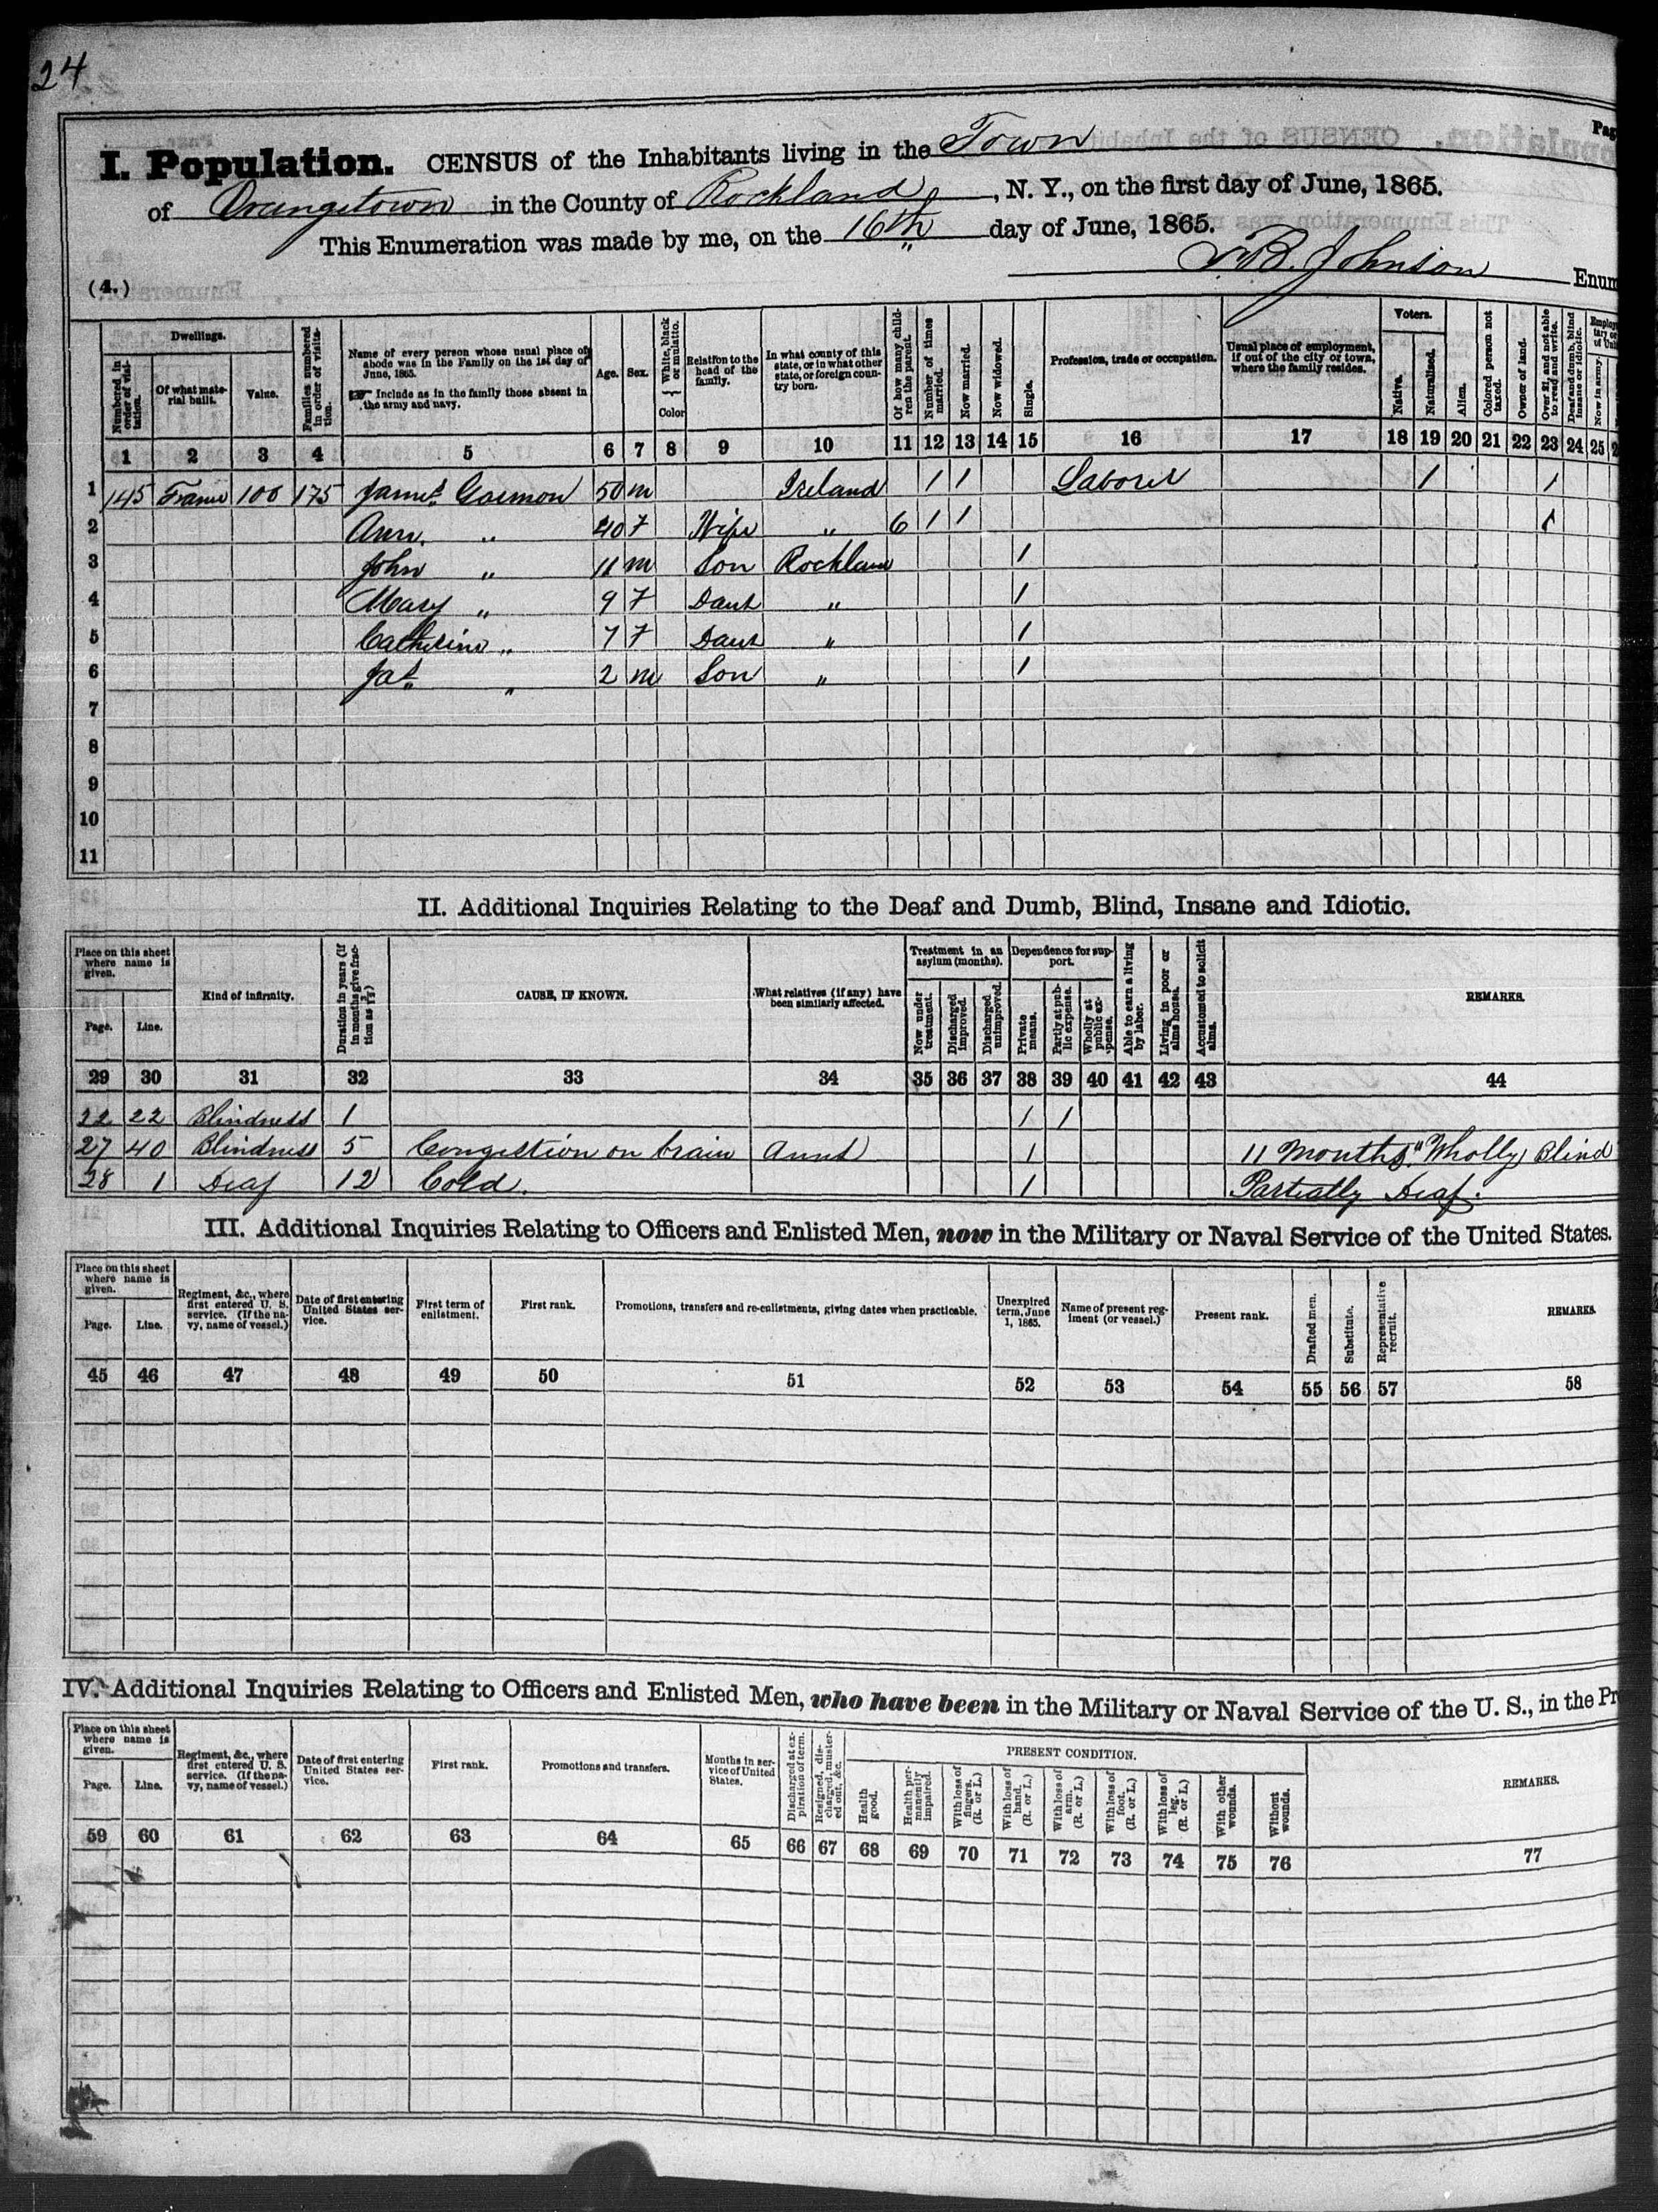 24
I. Population. CENSUS of the Inhabitants living in the Town
of Orangetown in the County of Rockland, N. Y., on the first day of June, 1865.
This Enumeration was made by me, on the 16th day of June, 1865.
B. Johnson Enum
(4.)
Dwellings. Voters.
Numbered in order of visitation. Of what material built. Value. Families numbered in order of visitation. Name of every person whose usual place of abode was in the Family on the 1st day of June, 1865. Include as in the family those absent in the army and navy. Age. Sex. White, black or mulatto. Color Relation to the head of the family. In what county of this state, or in what other state, or foreign country born. Of how many children the parent. Number of times married. Now married. Now widowed. Single. Profession, trade or occupation. Usual place of employment, if out of the city or town, where the family resides. Native. Naturalized. Alien. Colored person not taxed. Owner of land. Over 21, and not able to read and write. Deaf and dumb, blind Insane or idiotic. Now in army.
1 2 3 4 5 6 7 8 9 10 11 12 13 14 15 16 17 18 19 20 21 22 23 24 25
1 145 Frame 100 175 James Gormon 50 m Ireland 1 1 Laborer 1 1
2 Ann " 40 F Wife " 6 1 1 1
3 John " 11 m Son Rockland 1
4 Mary " 9 F Daut " 1
5 Catherine " 7 F Daut " 1
6 Jas " 2 m Son " 1
7
8
9
10
11
II. Additional Inquiries Relating to the Deaf and Dumb, Blind, Insane and Idiotic.
Place on this sheet where name is given. Treatment in an asylum (months). Dependence for support.
Page. Line. Kind of infirmity. Duration in years (if in months give fraction as CAUSE, IF KNOWN. What relatives (if any) have been similarly affected. Now under treatment. Discharged improved. Discharged unimproved. Private means. Partly at public expense. Wholly at public expense. Able to earn a living by labor. Living in poor or alms house. Accustomed to solicit alms. REMARKS.
29 30 31 32 33 34 35 36 37 38 39 40 41 42 43 44
22 22 Blindness 1 1 1
27 40 Blindness 5 Congestion on brain Aunt 1 11 Months. "Wholly Blind
28 1 Deaf 12 Cold. 1 Partially Deaf.
III. Additional Inquiries Relating to Officers and Enlisted Men, now in the Military or Naval Service of the United States.
Place on this sheet where name is given.
Page. Line. Regiment, &c., where first entered U. S. service. (If the navy, name of vessel.) Date of first entering United States service. First term of enlistment. First rank. Promotions, transfers and re-enlistments, giving dates when practicable. Unexpired term, June 1, 1865. Name of present regiment (or vessel.) Present rank. Drafted men. Substitute. Representative recruit. REMARKS.
45 46 47 48 49 50 51 52 53 54 55 56 57 58
IV. Additional Inquiries Relating to Officers and Enlisted Men, who have been in the Military or Naval Service of the U. S., in the Pr
Place on this sheet where name is given. PRESENT CONDITION.
Page. Line. Regiment, &c., where first entered U. S. service. (If the navy, name of vessel.) Date of first entering United States service. First rank. Promotions and transfers. Months in service of United States. Discharged at expiration of term. Resigned, discharged, mustered out, &c. Health good. Health permanently impaired. With loss of fingers. (R. or L.) With loss of hand. (R. or L.) With loss of arm. (R. or L.) With loss of foot. (R. or L.) With loss of leg. (R. or L.) With other wounds. Without wounds. REMARKS.
59 60 61 62 63 64 65 66 67 68 69 70 71 72 73 74 75 76 77